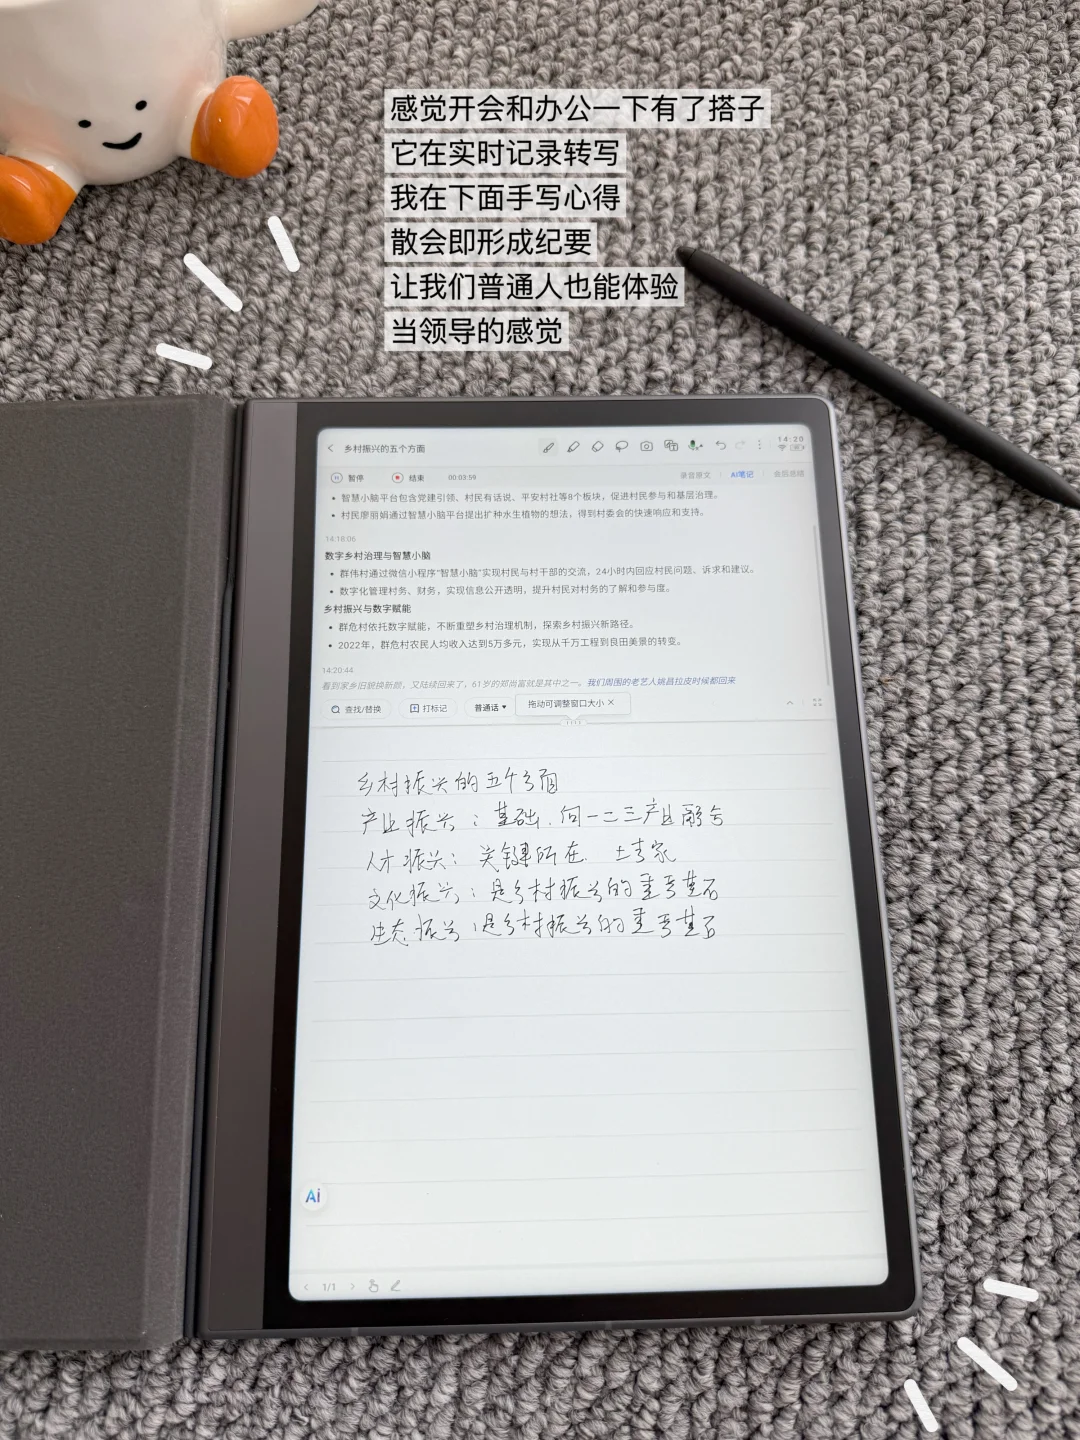 感觉开会和办公一下有了搭子
它在实时记录转写
我在下面手写心得
散会即形成纪要
让我们普通人也能体验
当领导的感觉
乡村振兴的五个方面
14:20
暂停 结束 00:03:59 录音原文 AI笔记 会后总结
智慧小脑平台包含党建引领、村民有话说、平安村社等8个板块，促进村民参与和基层治理。
村民廖丽娟通过智慧小脑平台提出扩种水生植物的想法，得到村委会的快速响应和支持。
14:18:06
数字乡村治理与智慧小脑
群伟村通过微信小程序“智慧小脑”实现村民与村干部的交流，24小时内回应村民问题、诉求和建议。
数字化管理村务、财务，实现信息公开透明，提升村民对村务的了解和参与度。
乡村振兴与数字赋能
群危村依托数字赋能，不断重塑乡村治理机制，探索乡村振兴新路径。
2022年，群危村农民人均收入达到5万多元，实现从千万工程到良田美景的转变。
14:20:44
看到家乡旧貌换新颜，又陆续回来了，61岁的郑尚富就是其中之一。我们周围的老艺人姚昌拉皮时候都回来
查找/替换 打标记 普通话 拖动可调整窗口大小
乡村振兴的五个方面
产业振兴：基础，向一二三产业融合
人才振兴：关键所在. 土专家
文化振兴：是乡村振兴的重要基石
生态振兴：是乡村振兴的重要基石
Ai
1/1